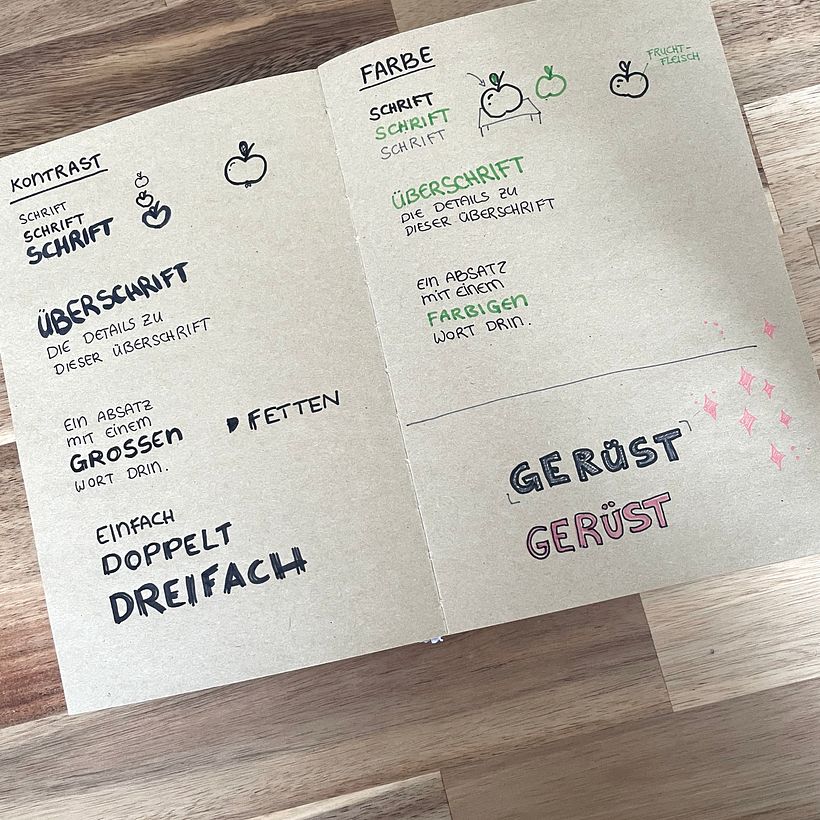 KONTRAST
SCHRIFT
SCHRIFT
SCHRIFT
ÜBERSCHRIFT
DIE DETAILS ZU
DIESER ÜBERSCHRIFT
EIN ABSATZ
MIT EINEM
GROSSEN
WORT DRIN.
FETTEN
EINFACH
DOPPELT
DREIFACH
FARBE
SCHRIFT
SCHRIFT
SCHRIFT
FRUCHT-
FLEISCH
ÜBERSCHRIFT
DIE DETAILS ZU
DIESER ÜBERSCHRIFT
EIN ABSATZ
MIT EINEM
FARBIGEN
WORT DRIN.
GERÜST
GERÜST